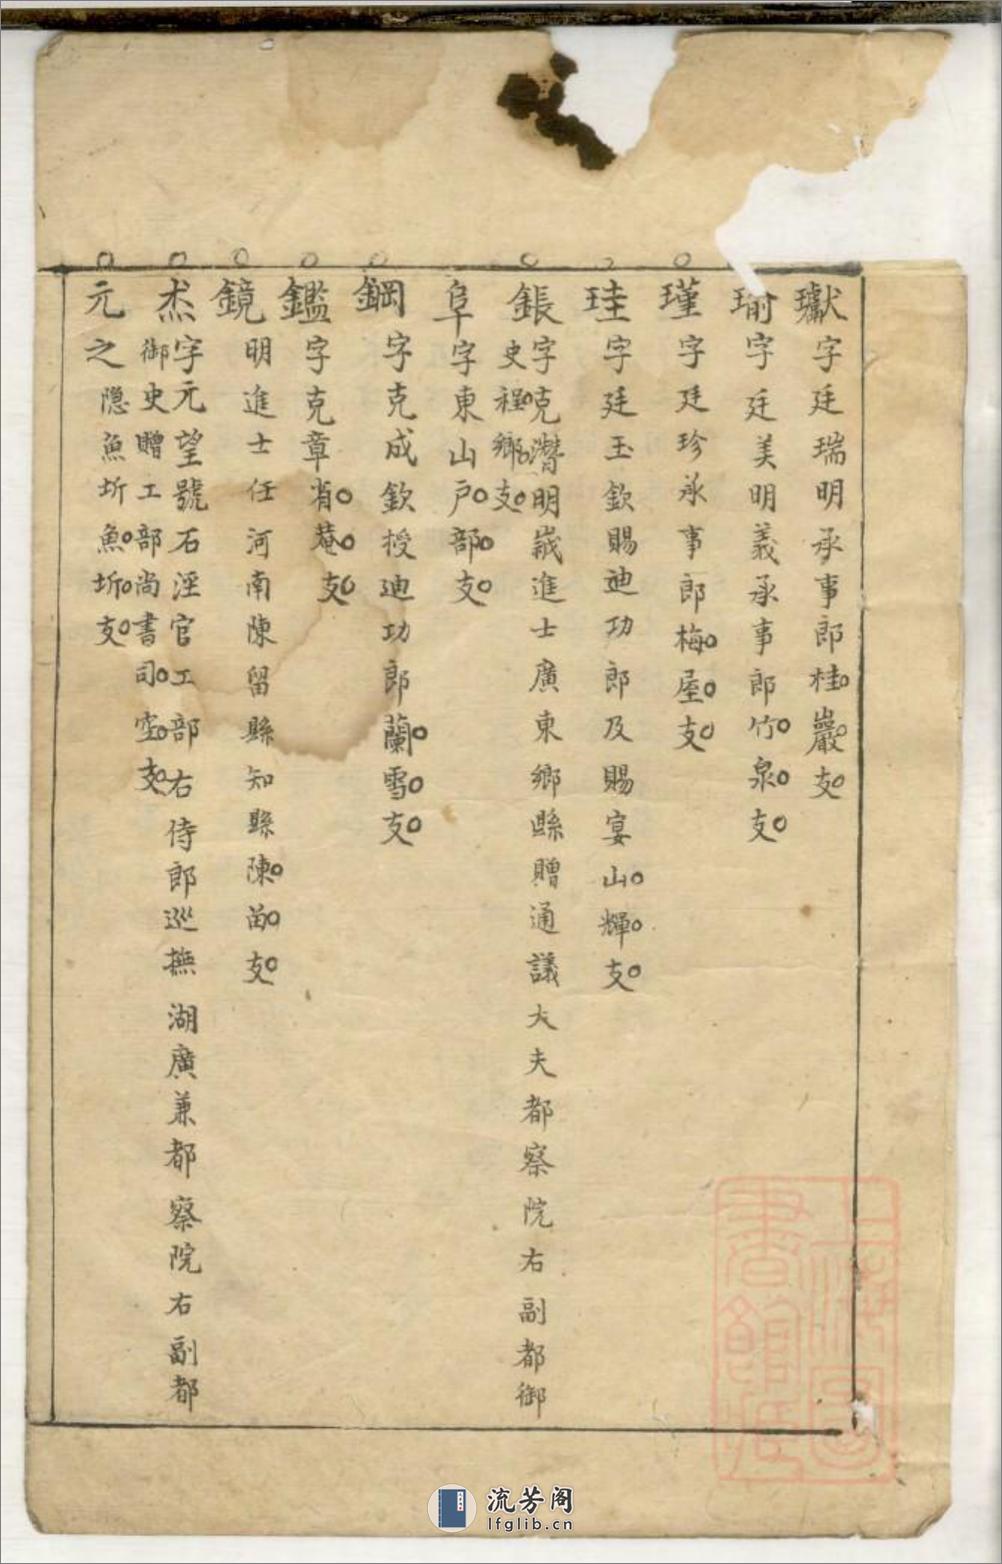 瓛字廷瑞明承事郎桂巖支
瑜字廷美明義承事郎竹泉支
瑾字廷珍承事郎梅屋支
珪字廷玉欽賜迪功郎及賜宴山輝支
鋹字克潛明嵗進士廣東鄉縣贈通議大夫都察院右副都御
史程鄉支
阜字東山戶部支
鋼字克成欽授迪功郎蘭雪支
鑑字克章肖菴支
鏡明進士任河南陳留縣知縣陳苗支
杰字元望號石淫官工部右侍郎巡撫湖廣兼都察院右副都
御史贈工部尚書司空支
元之隠魚圻魚圻支
上海圖
書館藏
流芳阁
lfglib.cn